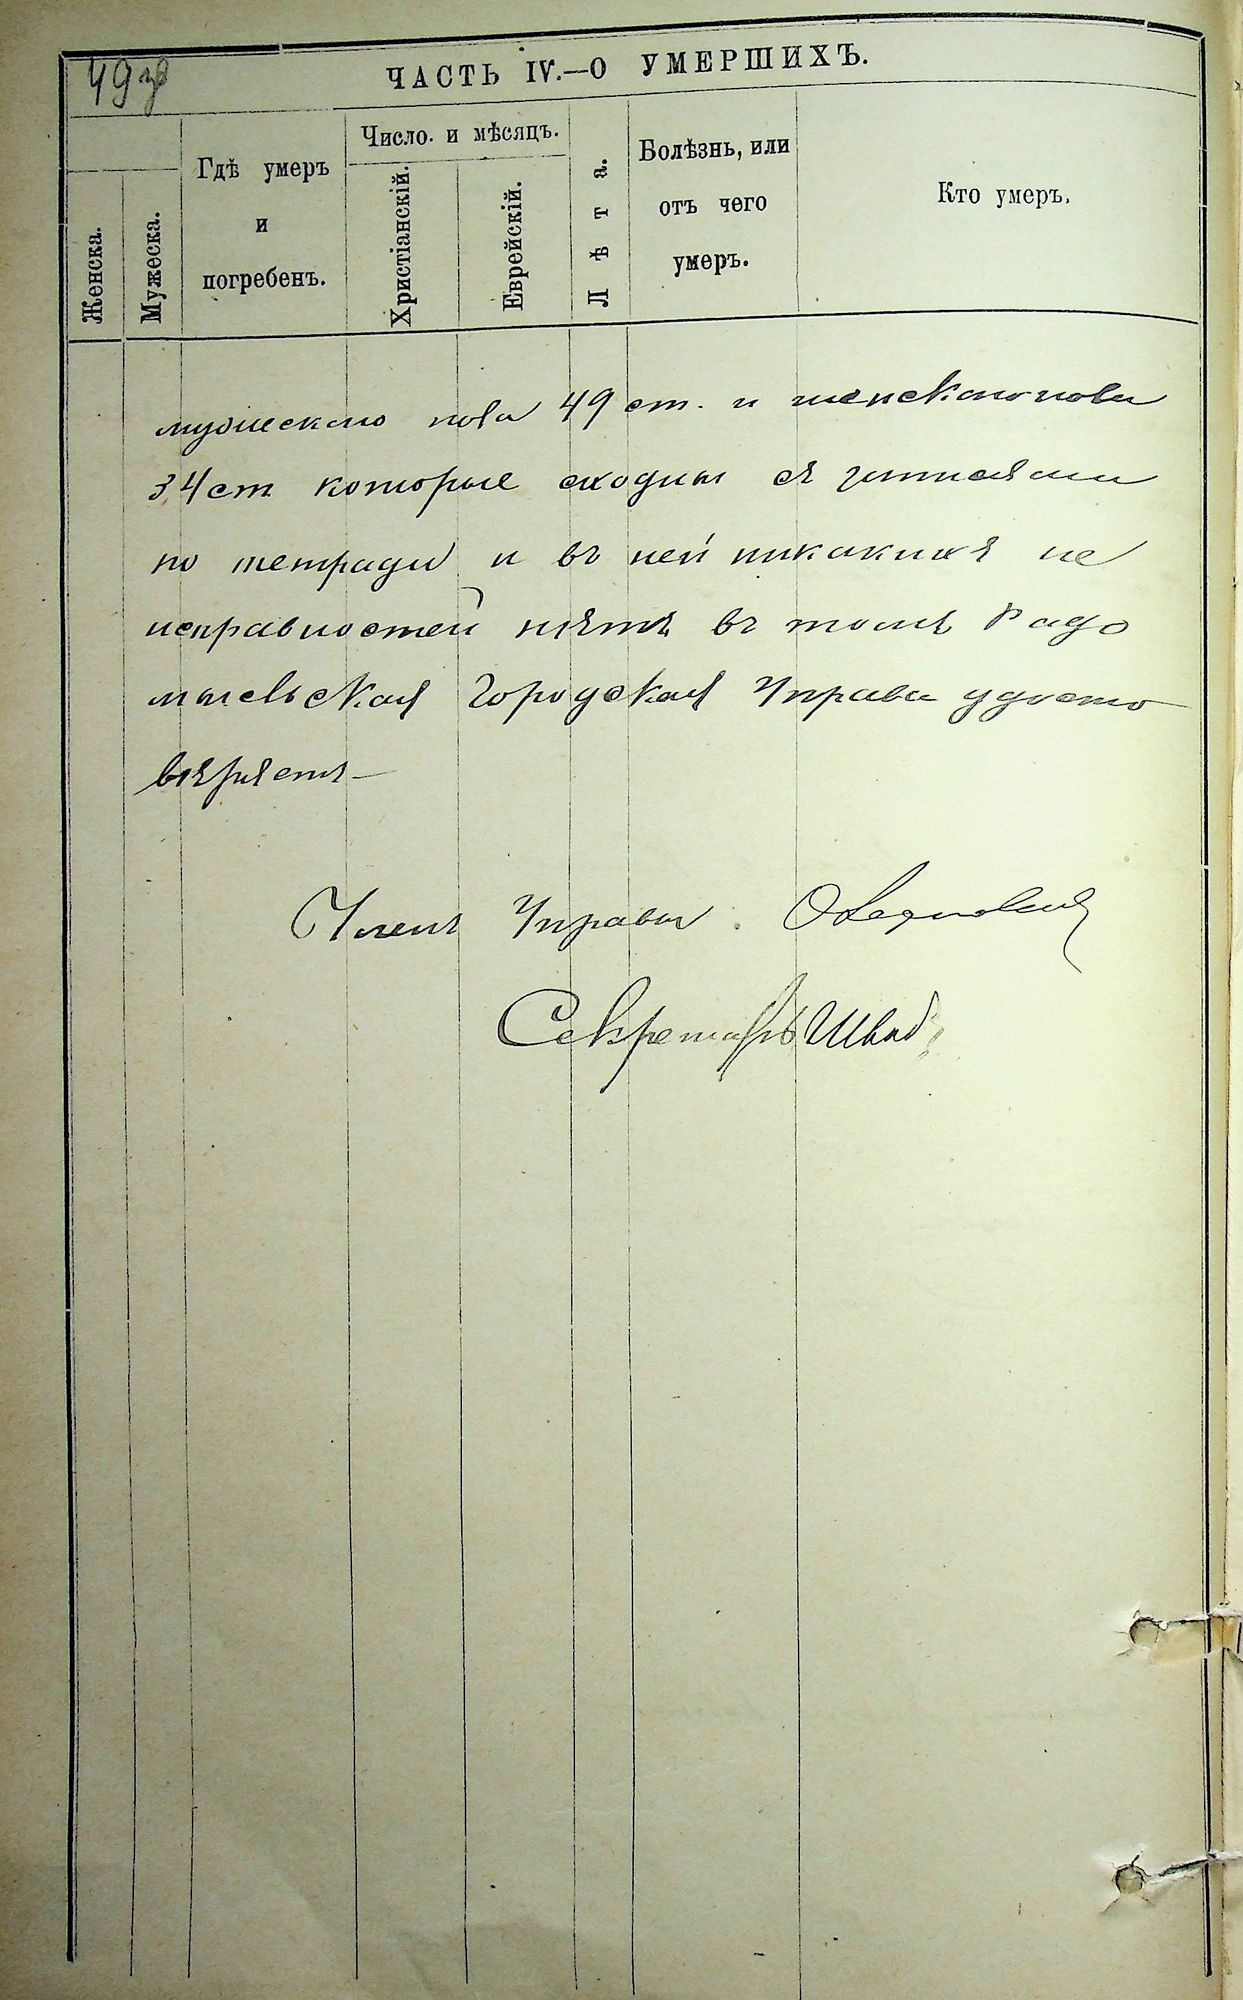 49 зв
ЧАСТЬ IV.—О УМЕРШИХЪ.
Женска.
Мужеска.
Гдѣ умеръ
и
погребенъ.
Число. и мѣсяцъ.
Христіанскій.
Еврейскій.
Лѣта.
Болѣзнь, или
отъ чего
умеръ.
Кто умеръ.
мужескаго пола 49 ст. и женскаго пола
34 ст которые сходны съ записями
по тетради и въ ней никакихъ не
исправностей нѣтъ въ томъ Радо
мысльская Городская Управа удосто
вѣряетъ—
Членъ Управы
Секретарь